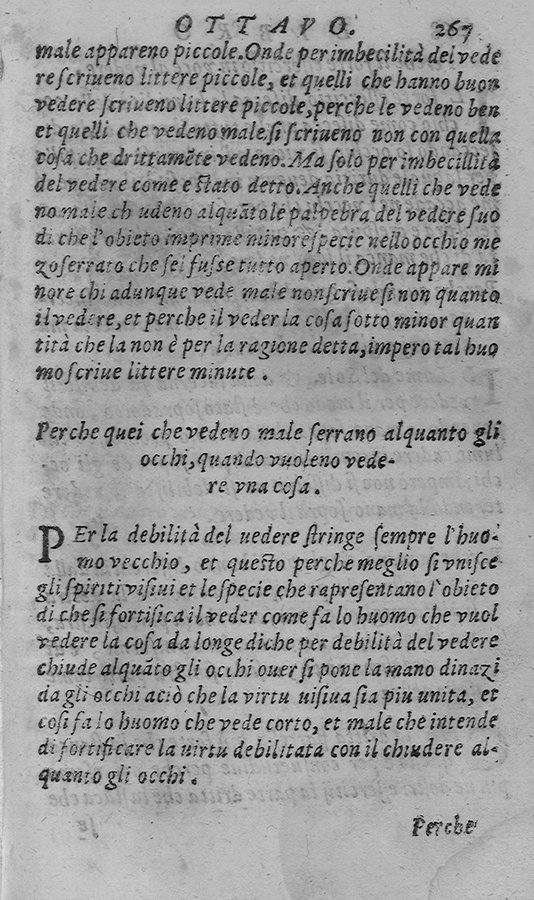 OTTAVO. 267
male appareno piccole. Onde per imbecilità del vede
re scriueno littere piccole, et quelli che hanno buon
vedere scriueno littere piccole, perche le vedeno ben
et quelli che vedeno male, si scriueno non con quella
cosa che drittamēte vedeno. Ma solo per imbecillità
del vedere come e stato detto. Anche quelli che vede
no male ch udeno alquāto le palpebra del vedere suo
di che l'obieto imprime minore specie nello occhio me
zo serrato che se i fusse tutto aperto. Onde appare mi
nore chi adunque vede male non scriue si non quanto
il vedere, et perche il veder la cosa sotto minor quan
tità che la non è per la ragione detta, impero tal huo
mo scriue littere minute.
Perche quei che vedeno male serrano alquanto gli
occhi, quando vuoleno vede-
re vna cosa.
PEr la debilità del uedere stringe sempre l'huo-
mo vecchio, et questo perche meglio si vnisce
gli spiriti visiui et le specie che rapresentano l'obieto
di che si fortifica il veder come fa lo huomo che vuol
vedere la cosa da longe di che per debilità del vedere
chiude alquāto gli occhi ouer si pone la mano dinazi
da gli occhi aciò che la virtu uisiua sia piu unita, et
cosi fa lo huomo che vede corto, et male che intende
di fortificare la uirtu debilitata con il chiudere al-
quanto gli occhi.
Perche